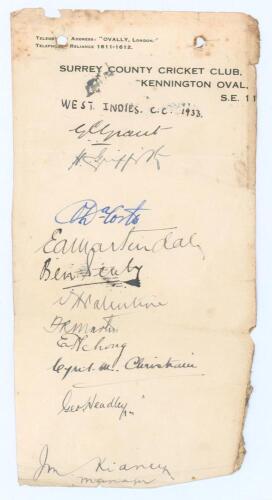 Address: "OVALLY, LONDON."
RELIANCE 1811-1612.
SURREY COUNTY CRICKET CLUB,
KENNINGTON OVAL,
S.E. 11
WEST. INDIES. C.C. 1933.
G C Grant
H. Griffith
Da Costa
E A Martindale
Ben Sealey
V A Valentine
F R Martin
E Achong
Cyril M. Christiani
Geo Headley
Jm Kidney
Manager